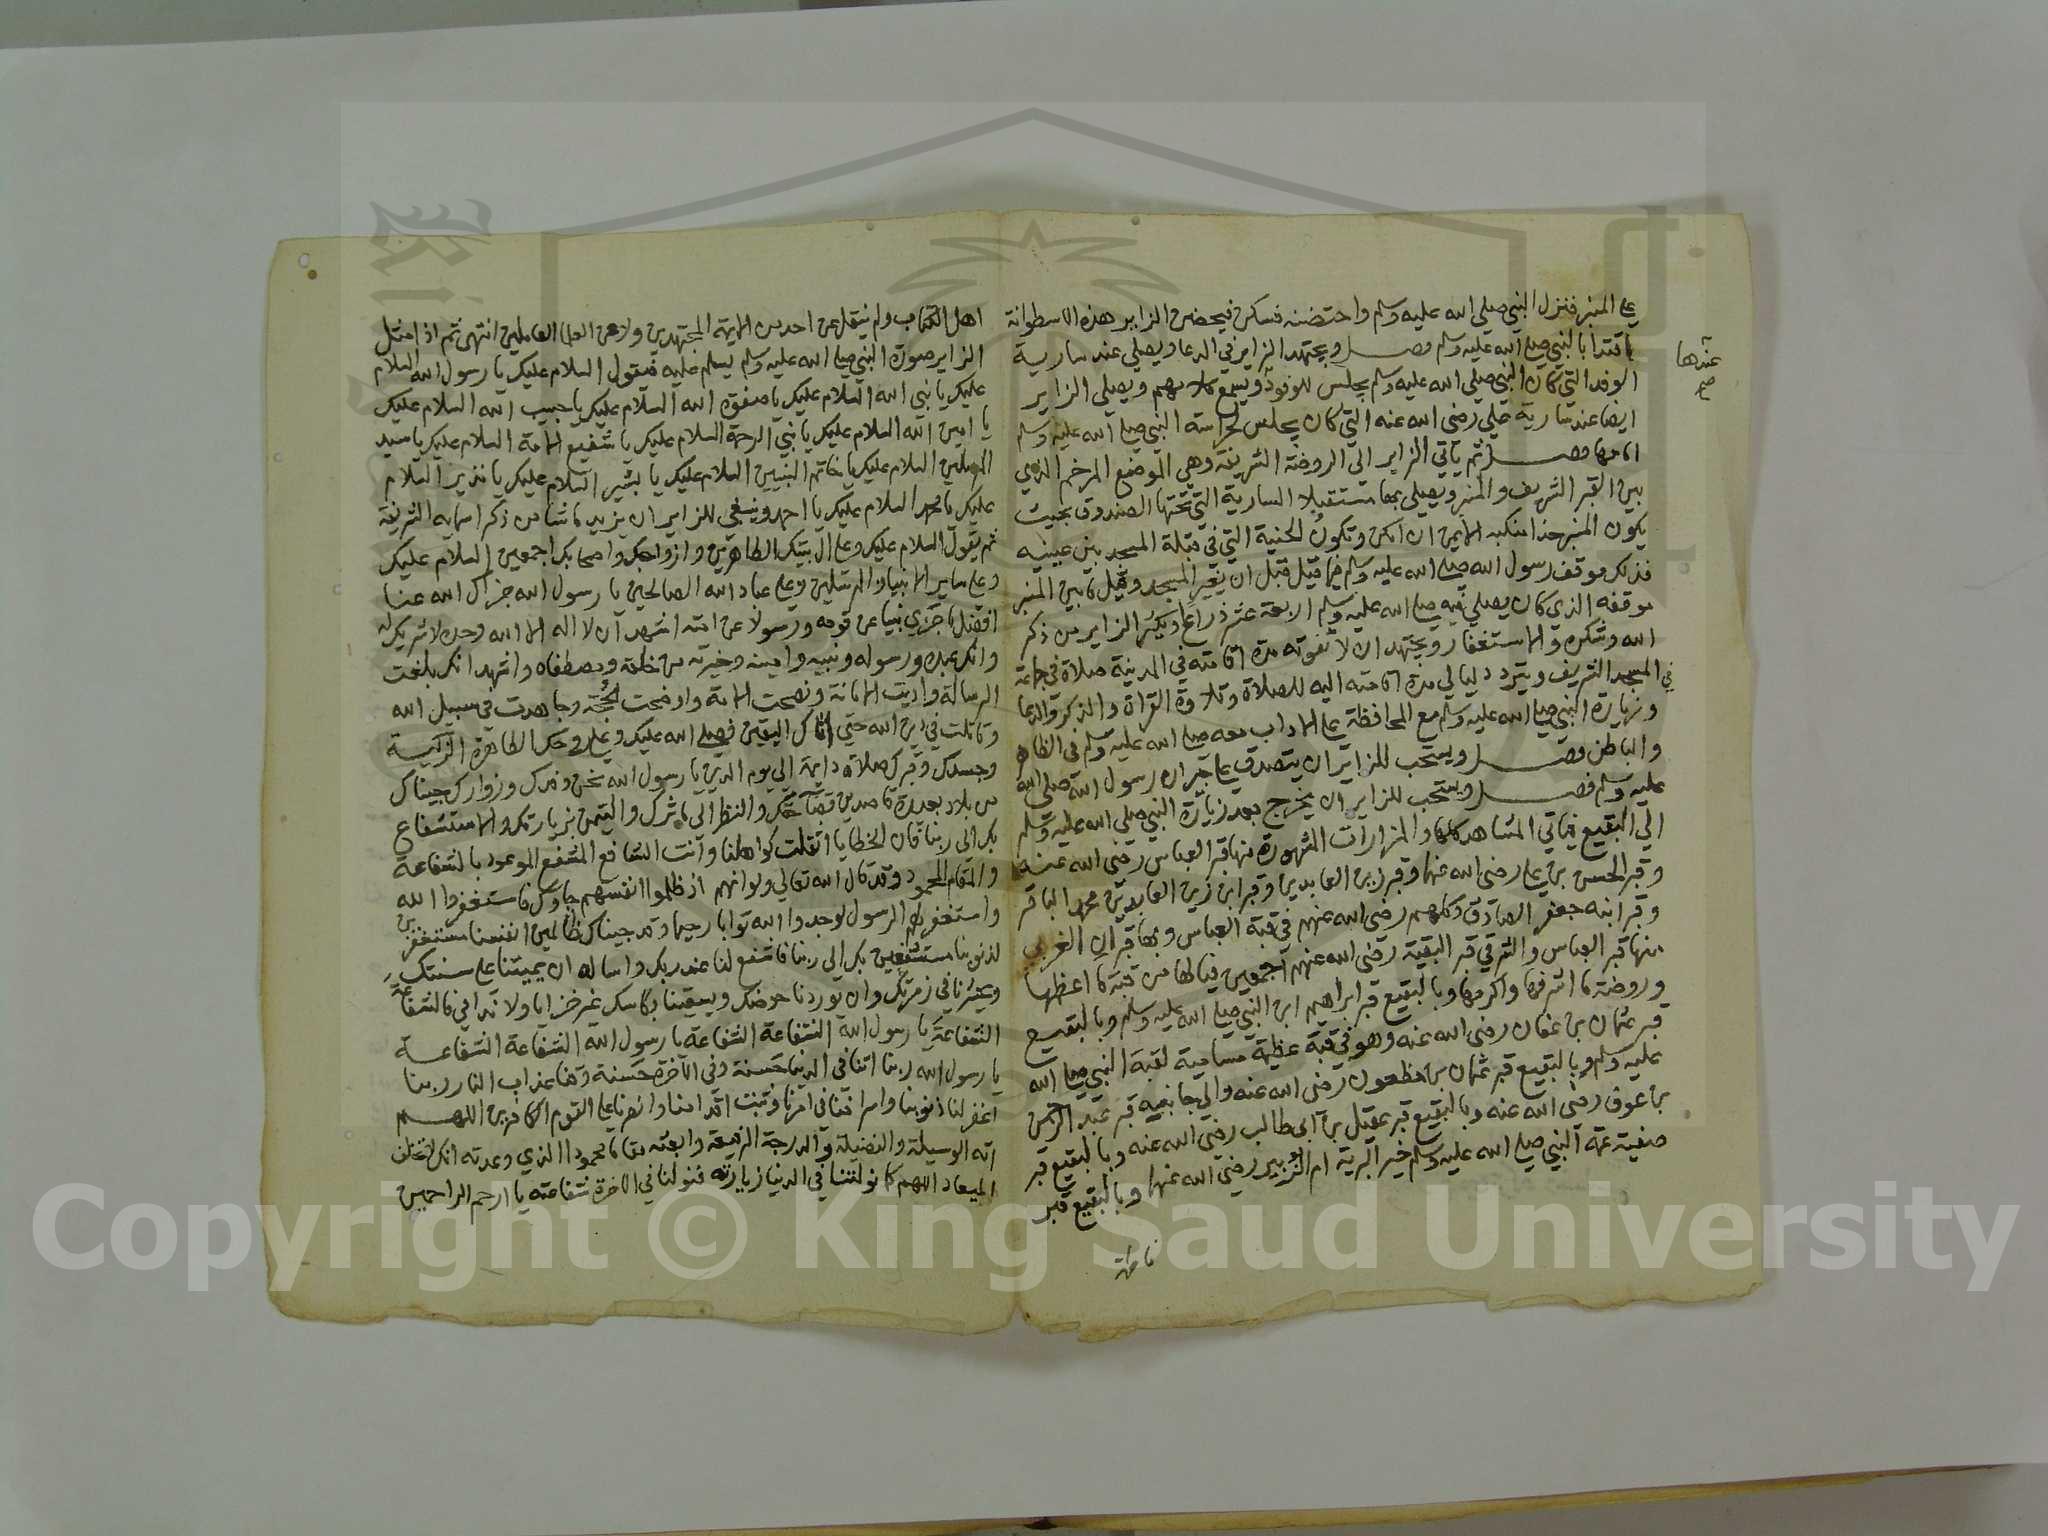 على المنبر فنزل النبي صلى الله عليه وسلم واحتضنه فسكن فيحضن الزاير هذه الاسطوانة
اقتدا بالنبي صلى الله عليه وسلم فصل ويجتهد الزاير في الدعا ويصلي عند سارية
عندها
صح
الوفد التي كان النبي صلى الله عليه وسلم يجلس للوفود ويسمع كلامهم ويصلي الزاير
ايضا عند سارية علي رضى الله عنه التي كان يجلس لحراسة النبي صلى الله عليه وسلم
امامها فصل ثم ياتي الزاير الى الروضة الشريفة وهي الموضع المرخم الذي
بين القبر الشريف والمنبر ويصلي بها مستقبلا السارية التي تحتها الصندوق بحيث
يكون المنبر حذا منكبه الايمن ان امكن وتكون الحنية التي في قبلة المسجد بين عينيه
فذلك موقف رسول الله صلى الله عليه وسلم فيما قيل قبل ان يغير المسجد وقيل ما بين المنبر
موقفه الذي كان يصلي فيه صلى الله عليه وسلم اربعة عشر ذراعا ويكثر الزاير من ذكر
الله وشكره والاستغفار ويجتهد ان لا تفوته مدة اقامته في المدينة صلاة في جماعة
في المسجد الشريف ويتردد ليالي مدة اقامته اليه للصلاة وتلاوة القراة والذكر والدعا
وزيارة النبي صلى الله عليه وسلم مع المحافظة على الاداب معه صلى الله عليه وسلم في الظاهر
والباطن فصل ويستحب للزاير ان يتصدق على جيران رسول الله صلى الله
عليه وسلم فصل ويستحب للزاير ان يخرج بعد زيارة النبي صلى الله عليه وسلم
الي البقيع فياتي المشاهد كلها والمزارات المشهورة منها قبر العباس رضى الله عنه
وقبر الحسن بن علي رضى الله عنهما وقبر زين العابدين وقبر ابن زين العابدين محمد الباقر
وقبر ابنه جعفر الصادق وكلهم رضى الله عنهم في قبة العباس وبها قبران الغربي
منهما قبر العباس والشرقي قبر البقية رضى الله عنهم اجمعين فيالها من قبة ما اعظمها
وروضة ما اشرفها واكرمها وبالبقيع قبر ابراهيم ابن النبي صلى الله عليه وسلم وبالبقيع
قبر عثمان بن عفان رضى الله عنه وهو في قبة عظيمة مسامية لقبة النبي صلى الله
عليه وسلم وبالبقيع قبر عثمان بن مظعون رضى الله عنه والي جانبه قبر عبد الرحمن
بن عوف رضى الله عنه وبالبقيع قبر عقيل بن ابى طالب رضى الله عنه وبالبقيع قبر
صفية عمة النبي صلى الله عليه وسلم خير البرية ام الزبير رضى الله عنها وبالبقيع قبر
فاطمة
اهل الكتاب ولم ينقل عن احد من الايمة المجتهدين ولا عن العلما العاملين انتهى ثم اذا مثل
الزاير صورة النبي صلى الله عليه وسلم يسلم عليه فيقول السلام عليك يا رسول الله السلام
عليك يا نبي الله السلام عليك يا صفوة الله السلام عليك يا حبيب الله السلام عليك
يا امين الله السلام عليك يا نبي الرحمة السلام عليك يا شفيع الامة السلام عليك يا سيد
المرسلين السلام عليك يا خاتم النبيين السلام عليك يا بشير السلام عليك يا نذير السلام
عليك يا محمد السلام عليك يا احمد وينبغي للزاير ان يزيد ما شا من ذكر اسمايه الشريفة
ثم يقول السلام عليك وعلى ال بيتك الطاهرين وازواجك واصحابك اجمعين السلام عليك
وعلى ساير الانبيا والمرسلين وعلى عباد الله الصالحين يا رسول الله جزاك الله عنا
افضل ما جزي نبيا عن قومه ورسولا عن امته اشهد ان لا اله الا الله وحده لا شريك له
وانك عبده ورسوله ونبيه وامينه وخيرته من خلقه ومصطفاه واشهد انك بلغت
الرسالة واديت الامانة ونصحت الامة واوضحت الحجة وجاهدت في سبيل الله
وقاتلت في دين الله حتى اتاك اليقين فصلى الله عليك وعلى روحك الطاهرة الزكية
وجسدك وقبرك صلاة دايمة الى يوم الدين يا رسول الله نحن وفدك وزوارك جيناك
من بلاد بعيدة قاصدين قضا حقك والنظر الى ماثرك والتيمن بزيارتك والاستشفاع
بك الى ربنا فان الخطايا اثقلت كواهلنا وانت الشافع المشفع الموعود بالشفاعة
والمقام المحمود وقد قال الله تعالى ولو انهم اذ ظلموا انفسهم جاوك فاستغفروا الله
واستغفر لهم الرسول لوجدوا الله توابا رحيما وقد جيناك ظالمين انفسنا مستغفرين
لذنوبنا مستشفعين بك الى ربنا فاشفع لنا عند ربك واساله ان يميتنا على سنتك
ويحشرنا في زمرتك وان يوردنا حوضك ويسقينا بكاسك غير خزايا ولا ندامي فالشفاعة
الشفاعة يا رسول الله الشفاعة الشفاعة يا رسول الله الشفاعة الشفاعة
يا رسول الله ربنا اتنا في الدنيا حسنة وفي الاخرة حسنة وقنا عذاب النار ربنا
اغفر لنا ذنوبنا واسرافنا في امرنا وثبت اقدامنا وانصرنا على القوم الكافرين اللهم
اته الوسيلة والفضيلة والدرجة الرفيعة وابعثه مقاما محمودا الذي وعدته انك لا تخلف
الميعاد اللهم كما نولتنا في الدنيا زيارته فنولنا في الاخرة شفاعته يا ارحم الراحمين
Copyright © King Saud University